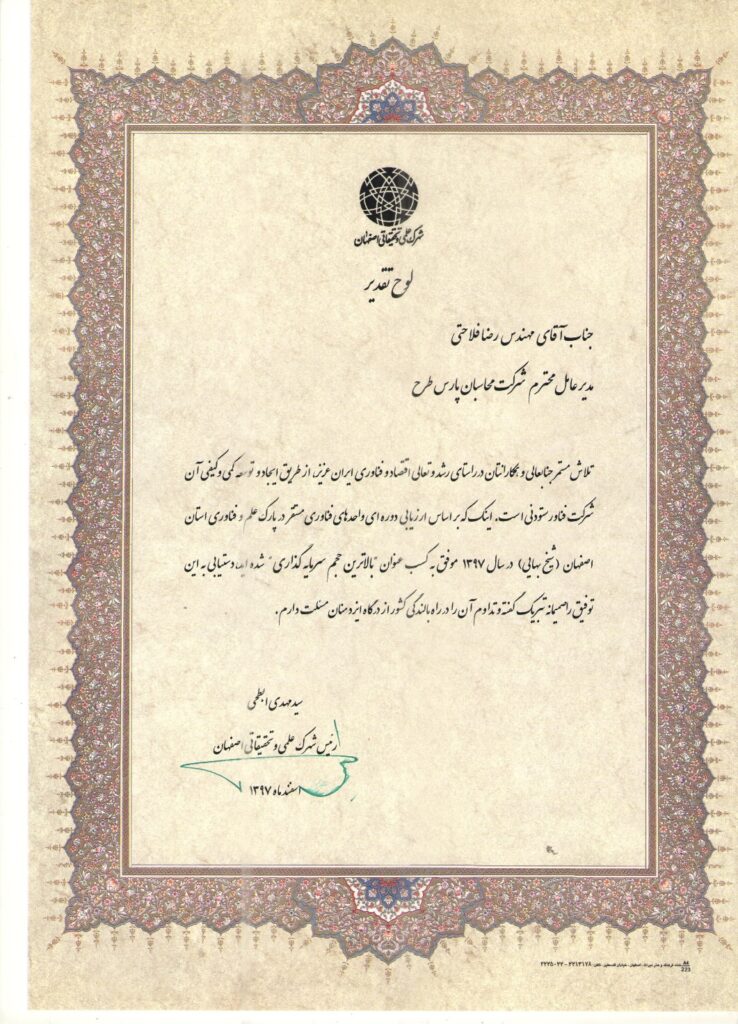 شهرک علمی و تحقیقاتی اصفهان
لوح تقدیر
جناب آقای مهندس رضا فلاحتی
مدیر عامل محترم شرکت محاسبان پارس طرح
تلاش مستمر جنابعالی و همکارانتان در راستای رشد و تعالی اقتصاد و فناوری ایران عزیز، از طریق ایجاد و توسعه کمی و کیفی آن
شرکت فناور ستودنی است. اینک که بر اساس ارزیابی دوره ای واحدهای فناوری مستقر در پارک علم و فناوری استان
اصفهان (شیخ بهایی) در سال ۱۳۹۷ موفق به کسب عنوان "بالاترین حجم سرمایه گذاری" شده اید، دستیابی به این
توفیق را صمیمانه تبریک گفته و تداوم آن را در راه بالندگی کشور از درگاه ایزد منان مسئلت دارم.
سید مهدی ابطحی
رئیس شهرک علمی و تحقیقاتی اصفهان
اسفند ماه ۱۳۹۷
A4
223